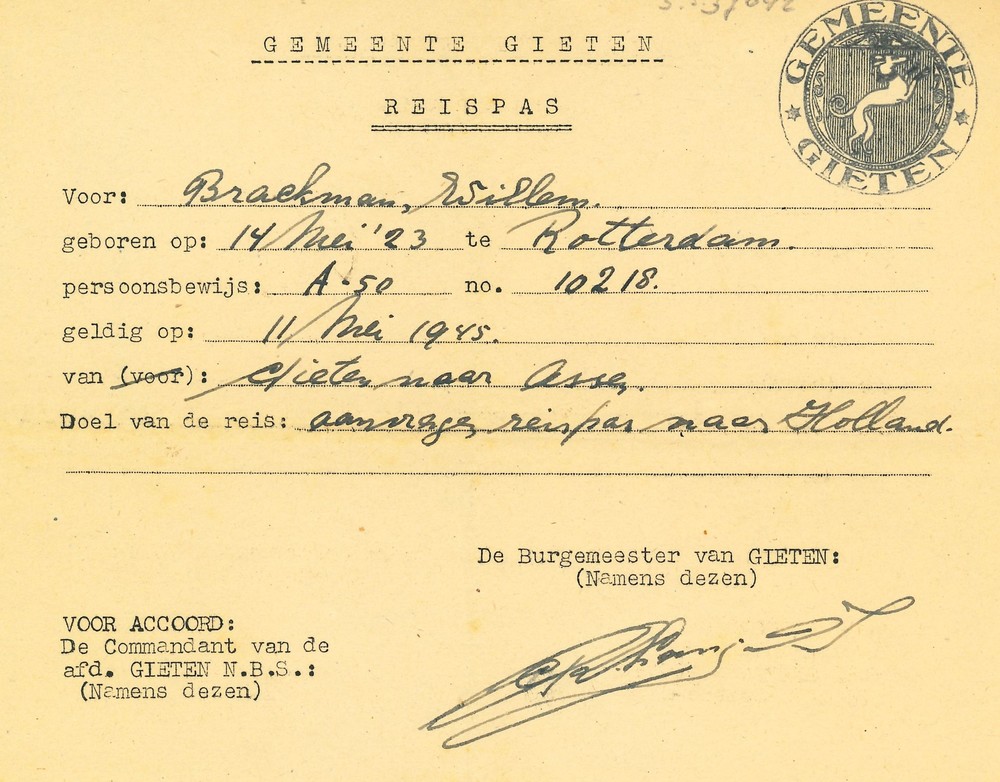 GEMEENTE GIETEN
REISPAS
GEMEENTE GIETEN
Voor: Brackman, Willem.
geboren op: 14 Mei '23 te Rotterdam.
persoonsbewijs: A-50 no. 10218.
geldig op: 11 Mei 1945.
van (voor): Gieten naar Assen.
Doel van de reis: aanvragen reispas naar Holland.
De Burgemeester van GIETEN:
(Namens dezen)
VOOR ACCOORD:
De Commandant van de
afd. GIETEN N.B.S.:
(Namens dezen)